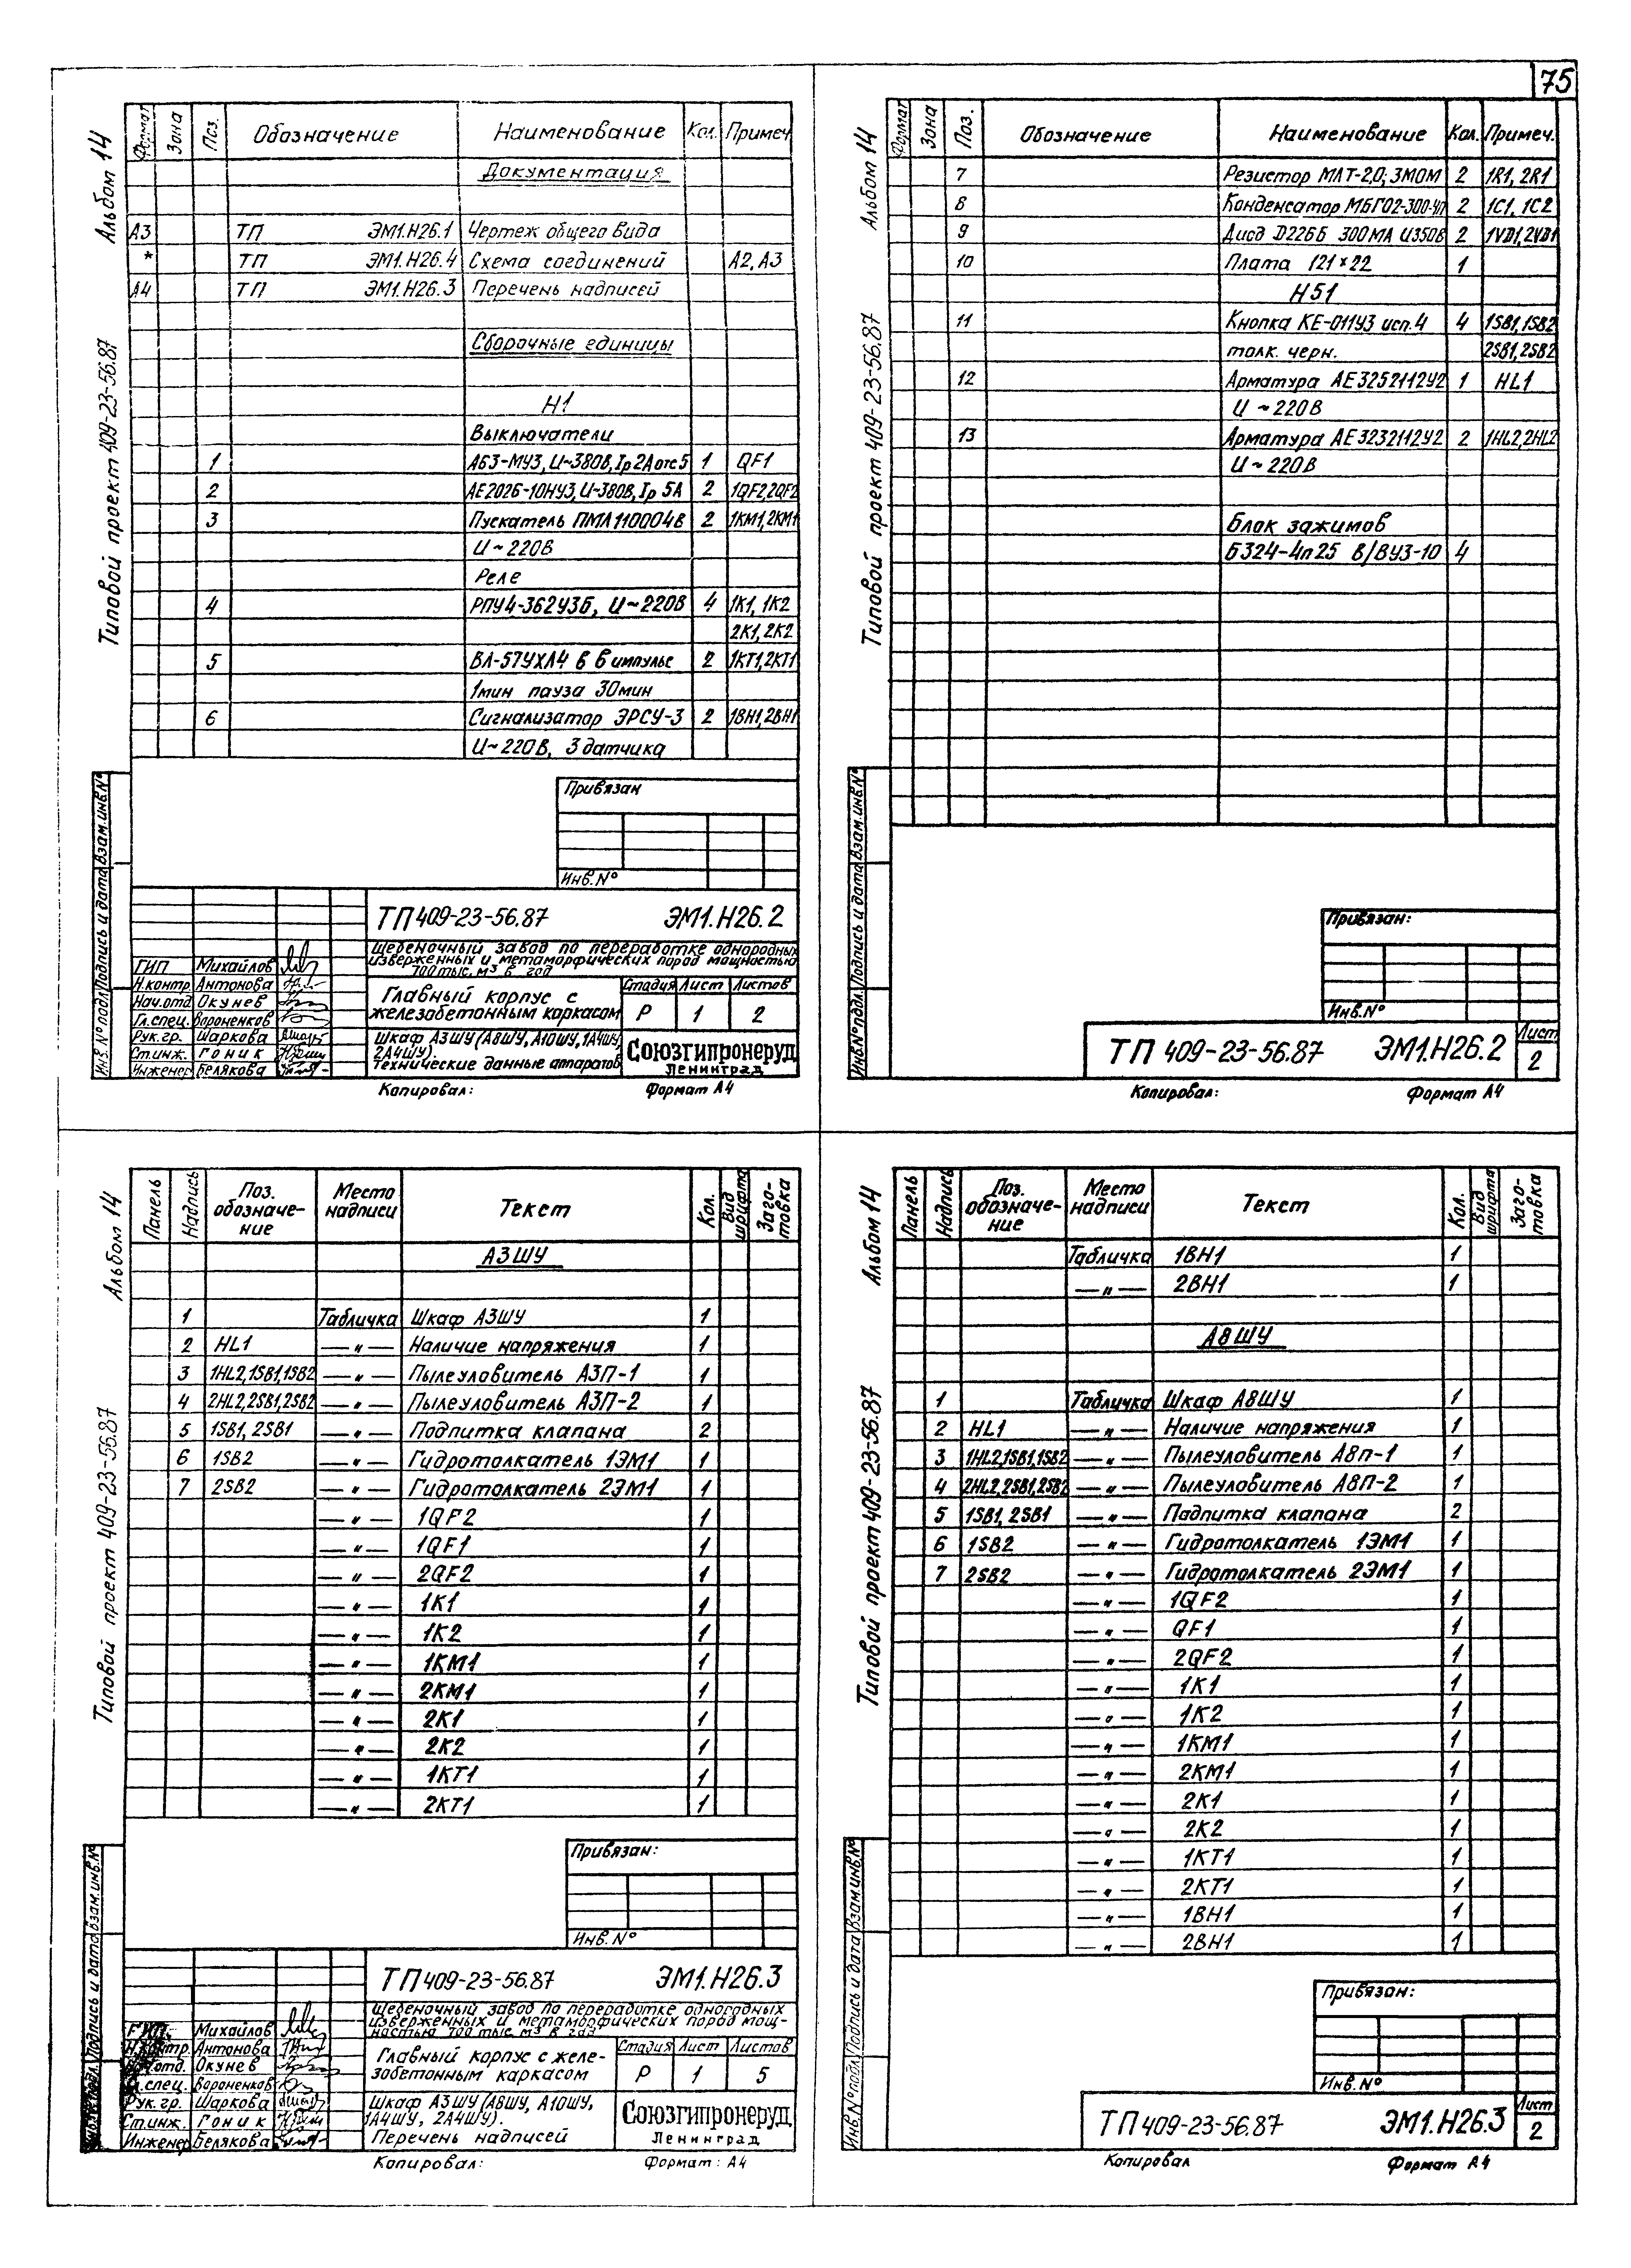 75
Альбом 14
Типовой проект 409-23-56.87
Формат Зона Поз. Обозначение Наименование Кол. Примеч.
Документация
А3 ТП ЭМ1.Н26.1 Чертеж общего вида
* ТП ЭМ1.Н26.4 Схема соединений А2, А3
А4 ТП ЭМ1.Н26.3 Перечень надписей
Сборочные единицы
Н1
Выключатели
1 АБ3-МУ3, U~380В, Iр 2А отс 5 1 QF1
2 АЕ2026-10НУ3, U-380В, Iр 5А 2 1QF2, 2QF2
3 Пускатель ПМЛ110004В 2 1КМ1, 2КМ1
U ~ 220В
Реле
4 РПУ4-362У3Б, U~220В 4 1К1, 1К2
2К1, 2К2
5 ВЛ-57УХЛ4 в в импульс 2 1КТ1, 2КТ1
1мин пауза 30мин
6 Сигнализатор ЭРСУ-3 2 1ВН1, 2ВН1
U~220В, 3 датчика
Привязан
Инв. №
Инв. № подл. Подпись и дата Взам. инв. №
ТП 409-23-56.87 ЭМ1.Н26.2
Щебеночный завод по переработке однородных
изверженных и метаморфических пород мощностью
700 тыс. м³ в год
ГИП Михайлов
Н.контр Антонова
Нач.отд Окунев
Гл.спец. Вороненков
Рук.гр. Шаркова
Ст.инж. Гоник
Инженер Белякова
Главный корпус с
железобетонным каркасом
Стадия Лист Листов
Р 1 2
Шкаф А3ШУ (А8ШУ, А10ШУ, 1А4ШУ,
2А4ШУ).
Технические данные аппаратов
Союзгипронеруд
Ленинград
Копировал: Формат А4
Альбом 14
Типовой проект 409-23-56.87
Формат Зона Поз. Обозначение Наименование Кол. Примеч.
7 Резистор МЛТ-2,0; 3МОМ 2 1R1, 2R1
8 Конденсатор МБГО2-300-4п 2 1С1, 1С2
9 Диод Д226Б 300МА U350В 2 1VD1, 2VD1
10 Плата 121×22 1
Н51
11 Кнопка КЕ-011У3 исп.4 4 1SB1, 1SB2
толк. черн. 2SB1, 2SB2
12 Арматура АЕ3252112У2 1 HL1
U ~ 220В
13 Арматура АЕ3232112У2 2 1HL2, 2HL2
U ~ 220В
Блок зажимов
Б324-4п25 В/ВУ3-10 4
Привязан:
Инв. №
Инв. № подл. Подпись и дата Взам. инв. №
ТП 409-23-56.87 ЭМ1.Н26.2 Лист
2
Копировал: Формат А4
Альбом 14
Типовой проект 409-23-56.87
Панель Надпись Поз. обозначе-ние Место надписи Текст Кол. Вид шрифта Заго-товка
А3ШУ
1 Табличка Шкаф А3ШУ 1
2 HL1 —"— Наличие напряжения 1
3 1HL2, 1SB1, 1SB2 —"— Пылеуловитель А3П-1 1
4 2HL2, 2SB1, 2SB2 —"— Пылеуловитель А3П-2 1
5 1SB1, 2SB1 —"— Подпитка клапана 2
6 1SB2 —"— Гидротолкатель 1ЭМ1 1
7 2SB2 —"— Гидротолкатель 2ЭМ1 1
—"— 1QF2 1
—"— 1QF1 1
—"— 2QF2 1
—"— 1К1 1
—"— 1К2 1
—"— 1КМ1 1
—"— 2КМ1 1
—"— 2К1 1
—"— 2К2 1
—"— 1КТ1 1
—"— 2КТ1 1
Привязан:
Инв. №
Подпись и дата Взам. инв. №
ТП 409-23-56.87 ЭМ1.Н26.3
Щебеночный завод по переработке однородных
изверженных и метаморфических пород мощ-
ностью 700 тыс. м³ в год
ГИП Михайлов
Н.контр. Антонова
Нач.отд. Окунев
Гл.спец. Вороненков
Рук.гр. Шаркова
Ст.инж. Гоник
Инженер Белякова
Главный корпус с желе-
зобетонным каркасом
Стадия Лист Листов
Р 1 5
Шкаф А3ШУ (А8ШУ, А10ШУ,
1А4ШУ, 2А4ШУ).
Перечень надписей
Союзгипронеруд
Ленинград
Копировал: Формат: А4
Альбом 14
Типовой проект 409-23-56.87
Панель Надпись Поз. обозначе-ние Место надписи Текст Кол. Вид шрифта Заго-товка
Табличка 1ВН1 1
—"— 2ВН1 1
А8ШУ
1 Табличка Шкаф А8ШУ 1
2 HL1 —"— Наличие напряжения 1
3 1HL2, 1SB1, 1SB2 —"— Пылеуловитель А8п-1 1
4 2HL2, 2SB1, 2SB2 —"— Пылеуловитель А8П-2 1
5 1SB1, 2SB1 —"— Подпитка клапана 2
6 1SB2 —"— Гидротолкатель 1ЭМ1 1
7 2SB2 —"— Гидротолкатель 2ЭМ1 1
—"— 1QF2 1
—"— QF1 1
—"— 2QF2 1
—"— 1К1 1
—"— 1К2 1
—"— 1КМ1 1
—"— 2КМ1 1
—"— 2К1 1
—"— 2К2 1
—"— 1КТ1 1
—"— 2КТ1 1
—"— 1ВН1 1
—"— 2ВН1 1
Привязан:
Инв. №
Инв. № подл. Подпись и дата Взам. инв. №
ТП 409-23-56.87 ЭМ1.Н26.3 Лист
2
Копировал Формат А4